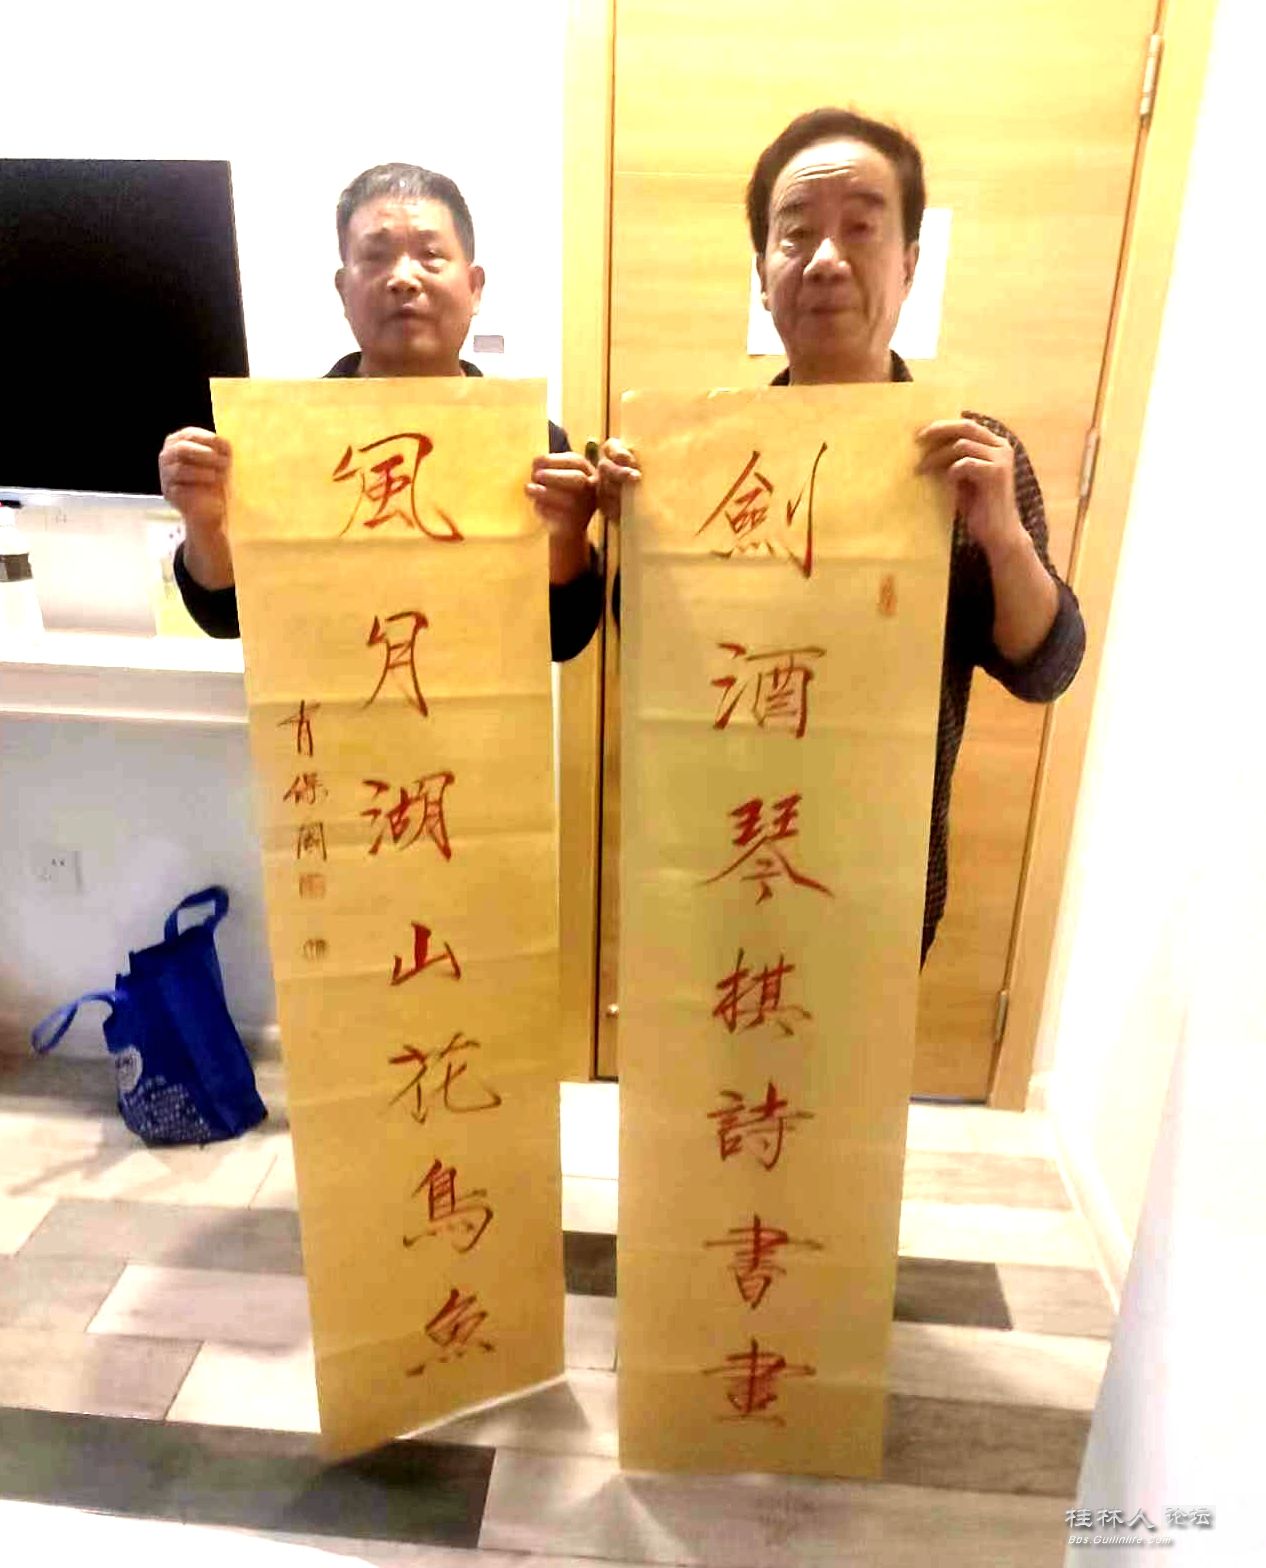 劍酒琴棋詩書畫
風月湖山花鳥魚
肖保國
桂林人论坛
Bbs.Guilinlife.com